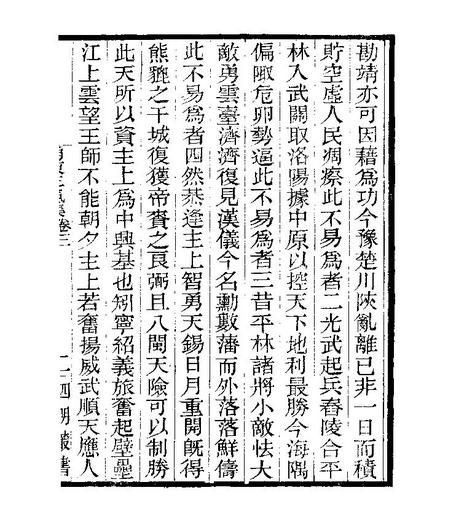 勘靖亦可因藉為功今豫楚川陝亂離已非一日而積
貯空虛人民凋瘵此不易為者二光武起兵舂陵合平
林入武關取洛陽據中原以控天下地利最勝今海隅
偏陬危卵勢逼此不易為者三昔平林諸將小敵怯大
敵勇雲臺濟濟復見漢儀今名勳數藩而外落落鮮儔
此不易為者四然恭逢主上智勇天錫日月重開旣得
熊貔之干城復獲帝賚之良弼且八閩天險可以制勝
此天所以資主上為中興基也矧寧紹義旅奮起壁壘
江上雲望王師不能朝夕主上若奮揚威武順天應人
卷三
二四明叢書